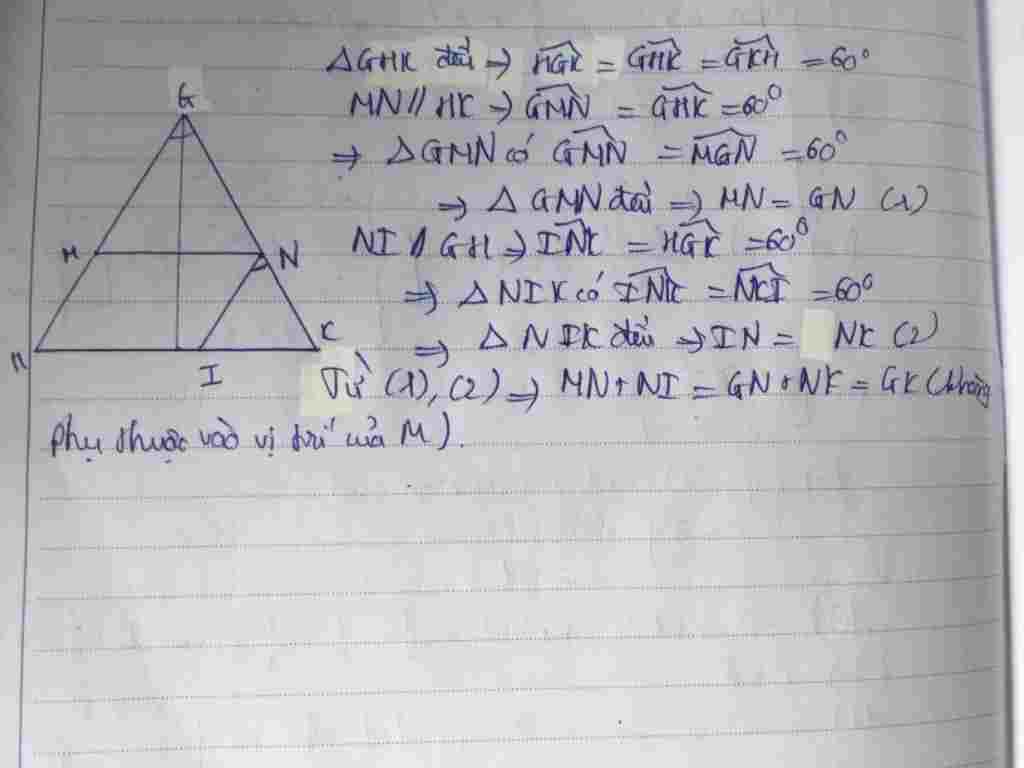 ΔGHK đều ⇒ \widehat{HGK} = \widehat{GHK} = \widehat{GKH} = 60°
MN // HK ⇒ \widehat{GMN} = \widehat{GHK} = 60°
⇒ ΔGMN có \widehat{GMN} = \widehat{MGN} = 60°
⇒ Δ GMN đều ⇒ MN = GN (1)
NI // GH ⇒ \widehat{INK} = \widehat{HGK} = 60°
⇒ Δ NIK có \widehat{INK} = \widehat{NKI} = 60°
⇒ Δ NIK đều ⇒ IN = NK (2)
Từ (1), (2) ⇒ MN + NI = GN + NK = GK (không
phụ thuộc vào vị trí của M).
G
M
N
H
I
K